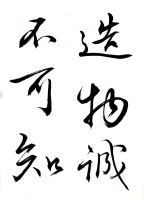 造物誠
不可知